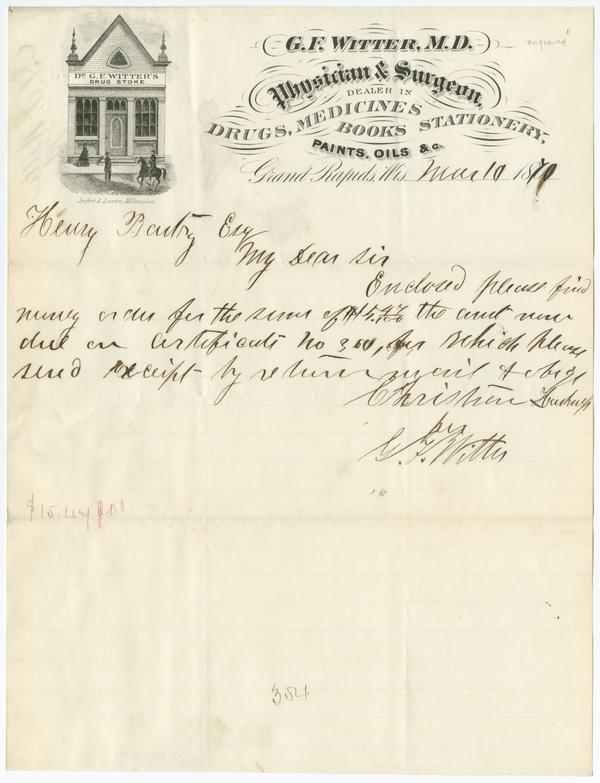 engraved
Dr. G. F. WITTER'S
DRUG STORE.
G. F. WITTER, M.D.
Physician & Surgeon,
DEALER IN
DRUGS, MEDICINES
BOOKS STATIONERY,
PAINTS, OILS &c.
Grand Rapids, Wis Mar 10 1870
Seifert & Lawton, Milwaukee
Henry Esq
My Dear sir
Enclosed please find
money order for the sum of $15.47/100 the amt now
due on Certificate No 300, for which please
send receipt by return mail & oblige
Christian
per
G. F. Witter
$15.47
384